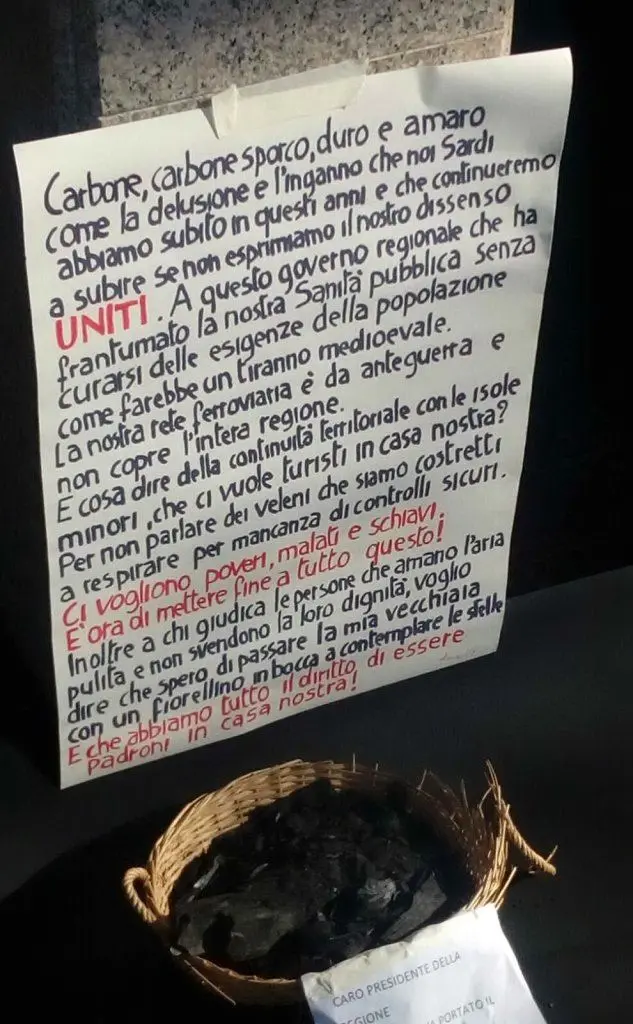 Carbone, carbone sporco, duro e amaro
come la delusione e l'inganno che noi Sardi
abbiamo subito in questi anni e che continueremo
a subire se non esprimiamo il nostro dissenso
UNITI. A questo governo regionale che ha
frantumato la nostra Sanità pubblica senza
curarsi delle esigenze della popolazione
come farebbe un tiranno medioevale.
La nostra rete ferroviaria è da anteguerra e
non copre l'intera regione.
E cosa dire della continuità territoriale con le isole
minori, che ci vuole turisti in casa nostra?
Per non parlare dei veleni che siamo costretti
a respirare per mancanza di controlli sicuri.
Ci vogliono poveri, malati e schiavi.
E' ora di mettere fine a tutto questo!
Inoltre a chi giudica le persone che amano l'aria
pulita e non svendono la loro dignità, voglio
dire che spero di passare la mia vecchiaia
con un fiorellino in bocca a contemplare le stelle
E che abbiamo tutto il diritto di essere
Padroni in casa nostra!
CARO PRESIDENTE DELLA
REGIONE
PORTATO IL